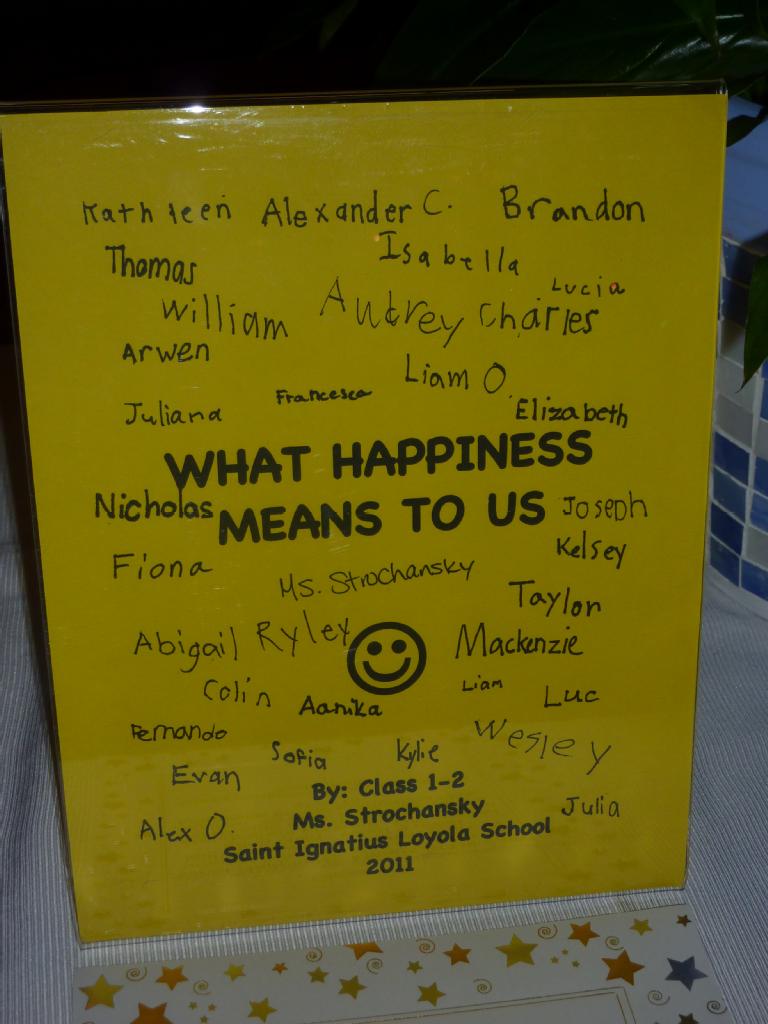 Kathleen Alexander C. Brandon
Thomas Isabella
William Audrey Charles Lucia
Arwen
Juliana Francesca Liam O. Elizabeth
WHAT HAPPINESS
Nicholas MEANS TO US Joseph
Fiona Ms. Strochansky Kelsey
Taylor
Abigail Ryley Mackenzie
Colin Aanika Liam Luc
Fernando Sofia Kylie Wesley
Evan By: Class 1-2
Alex O. Ms. Strochansky Julia
Saint Ignatius Loyola School
2011